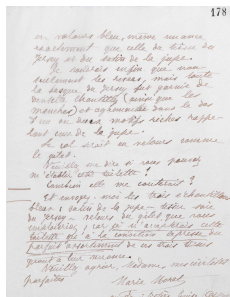 178
en velours bleu, même nuance
exactement que celle de
Jersey et du de la jupe.
Je voudrais enfin que non
seulement les revers, mais toute
la basque du Jersey fut garnie de
dentelle chantilly, ainsi que les
manches et dans le dos
d'un ou deux motifs riches
tout ceux de la jupe.
Le col serait en velours comme
le gilet.
Veuillez me dire si vous pouvez
m'établir cette toilette ?
Combien elle me coûterait ?
Et envoyez-moi les trois échantillons
bleus : satin de la jupe - tissu
du Jersey - velours du gilet que vous
emploieriez, car si j'acceptais cette
toilette ce à la condition expresse du
parfait assortiment de ces trois tissus
quant à leur nuance.
Veuillez agréer, Madame, mes civilités
parfaites
Marie Moret